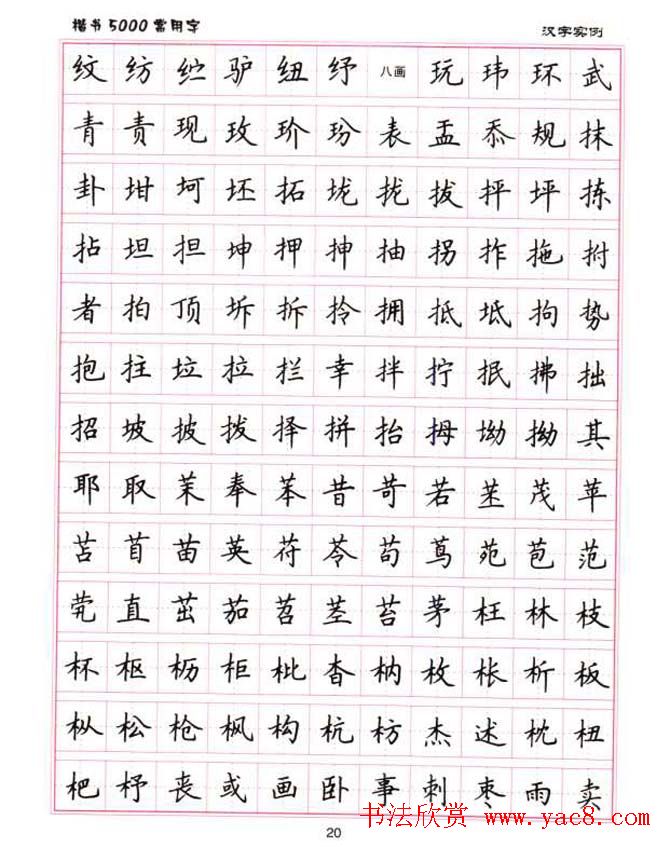 楷书5000常用字 汉字实例
纹 纺 纻 驴 纽 纾 八画 玩 玮 环 武
青 责 现 玫 玠 玢 表 盂 忝 规 抹
卦 坩 坷 坯 拓 垅 拢 拔 抨 坪 拣
拈 坦 担 坤 押 抻 抽 拐 拃 拖 拊
者 拍 顶 坼 拆 拎 拥 抵 坻 拘 势
抱 拄 垃 拉 拦 幸 拌 拧 抿 拂 拙
招 坡 披 拨 择 拼 抬 拇 坳 拗 其
耶 取 茉 奉 苯 昔 苛 若 茂 苹
苫 苜 苗 英 苻 苓 苟 茑 苑 苞 范
茕 直 茁 茄 苕 茎 苔 茅 枉 林 枝
杯 枢 枥 柜 枇 杳 枘 枚 枨 析 板
枞 松 枪 枫 构 杭 枋 杰 述 枕 杻
杷 杼 丧 或 画 卧 事 刺 枣 雨 卖
书法欣赏 www.yac8.com
20